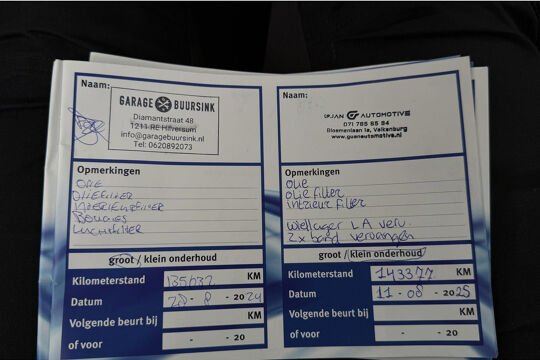 Naam:
GARAGE BUURSINK
Diamantstraat 48
1211 RE Hilversum
info@garagebuursink.nl
Tel: 0620892073
Opmerkingen
OLIE
OLIEFILTER
INTERIEURFILTER
BOUGIES
LUCHTFILTER
groot / klein onderhoud
Kilometerstand 135632 KM
Datum 28 - 8 - 2024
Volgende beurt bij KM
of voor - - 20
Naam:
AUTOMOTIVE
071 785 85 84
Bloemenlaan 1a, Valkenburg
Opmerkingen
OLIE
OLIE filter
intrieur filter
wiellager L A verv.
2x band vervangen
groot / klein onderhoud
Kilometerstand 143377 KM
Datum 11 - 08 - 2025
Volgende beurt bij KM
of voor - - 20